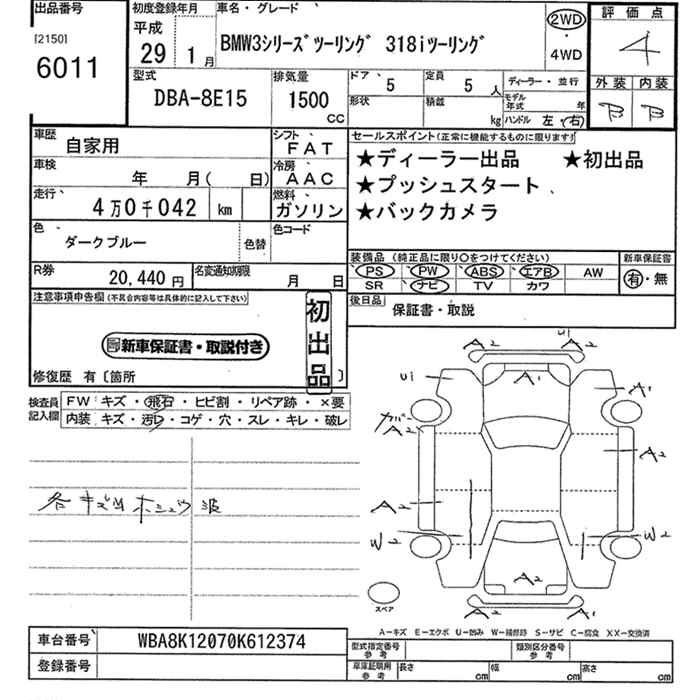 出品番号 初度登録年月 車名・グレード 2WD 評価点
[2150] 平成
6011 29 1月 BMW3シリーズツーリング 318iツーリング ・ 4
4WD
型式 排気量 ドア 5 定員 5人 ディーラー・並行 外装 内装
DBA-8E15 1500 CC 形状 積載 kg モデル年式 年 B B
ハンドル 左・右
車歴 自家用 シフト FAT セールスポイント(正常に機能するものに限ります)
車検 年 月( 日) 冷房 AAC ★ディーラー出品 ★初出品
走行 4万0千042 km 燃料 ガソリン ★プッシュスタート
★バックカメラ
色 ダークブルー 色替 色コード
装備品 (純正品に限り○をつけてください) 新車保証書
R券 20,440円 名変通知期限 月 日 PS PW ABS エアB AW 有・無
SR ナビ TV カワ
注意事項申告欄(不具合内容等は具体的に記入して下さい) 初出品 後日品 保証書・取説
新車保証書・取説付き
修復歴 有〔箇所 〕
検査員記入欄 FW キズ・飛石・ヒビ割・リペア跡・×要
内装 キズ・汚レ・コゲ・穴・スレ・キレ・破レ
各キズ凹ホシュウ
A2 U1 A2
U1 A1
A2 A2
A2
W2 W2
A2
スペア
A2 A2
A-キズ E-エクボ U-凹み W-補修跡 S-サビ C-腐食 XX-交換済
車台番号 WBA8K12070K612374 型式指定番号 参考 類別区分番号 参考
登録番号 車庫証明用 参考 長さ cm 幅 cm 高さ cm